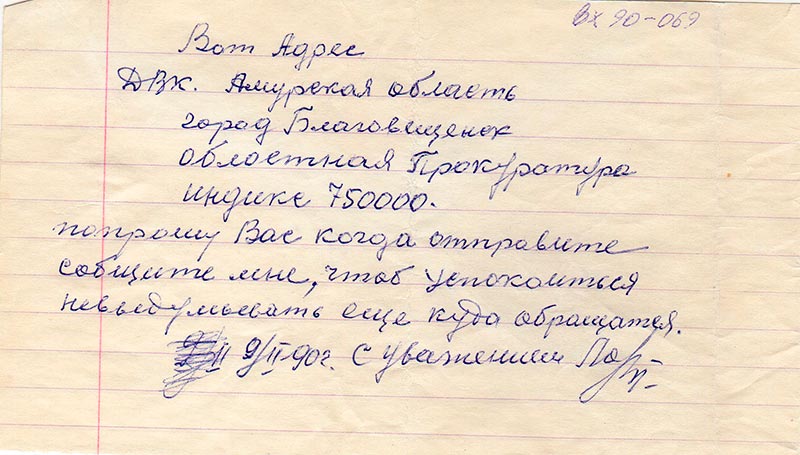 Вх 90-069
Вот Адрес
ДВК. Амурская область
город Благовещенск
облостная Прокуратура
индикс 750000.
попрошу Вас когда отправите
собщите мне, чтоб успокоиться
невыдумывать еще куда обращатся.
9/II-90г. С уважением